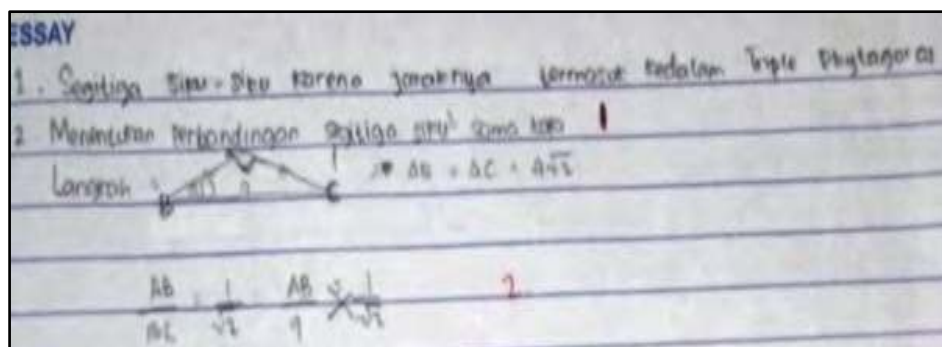 ESSAY
1. Segitiga siku-siku karena jaraknya termasuk kedalam Triple Phytagoras
2 Menentukan Perbandingan segitiga siku² sama kaki 1
Langkah: AB = AC = A√2
B 45° 9 C
AB/BC = 1/√2 = AB/9 1/√2 2